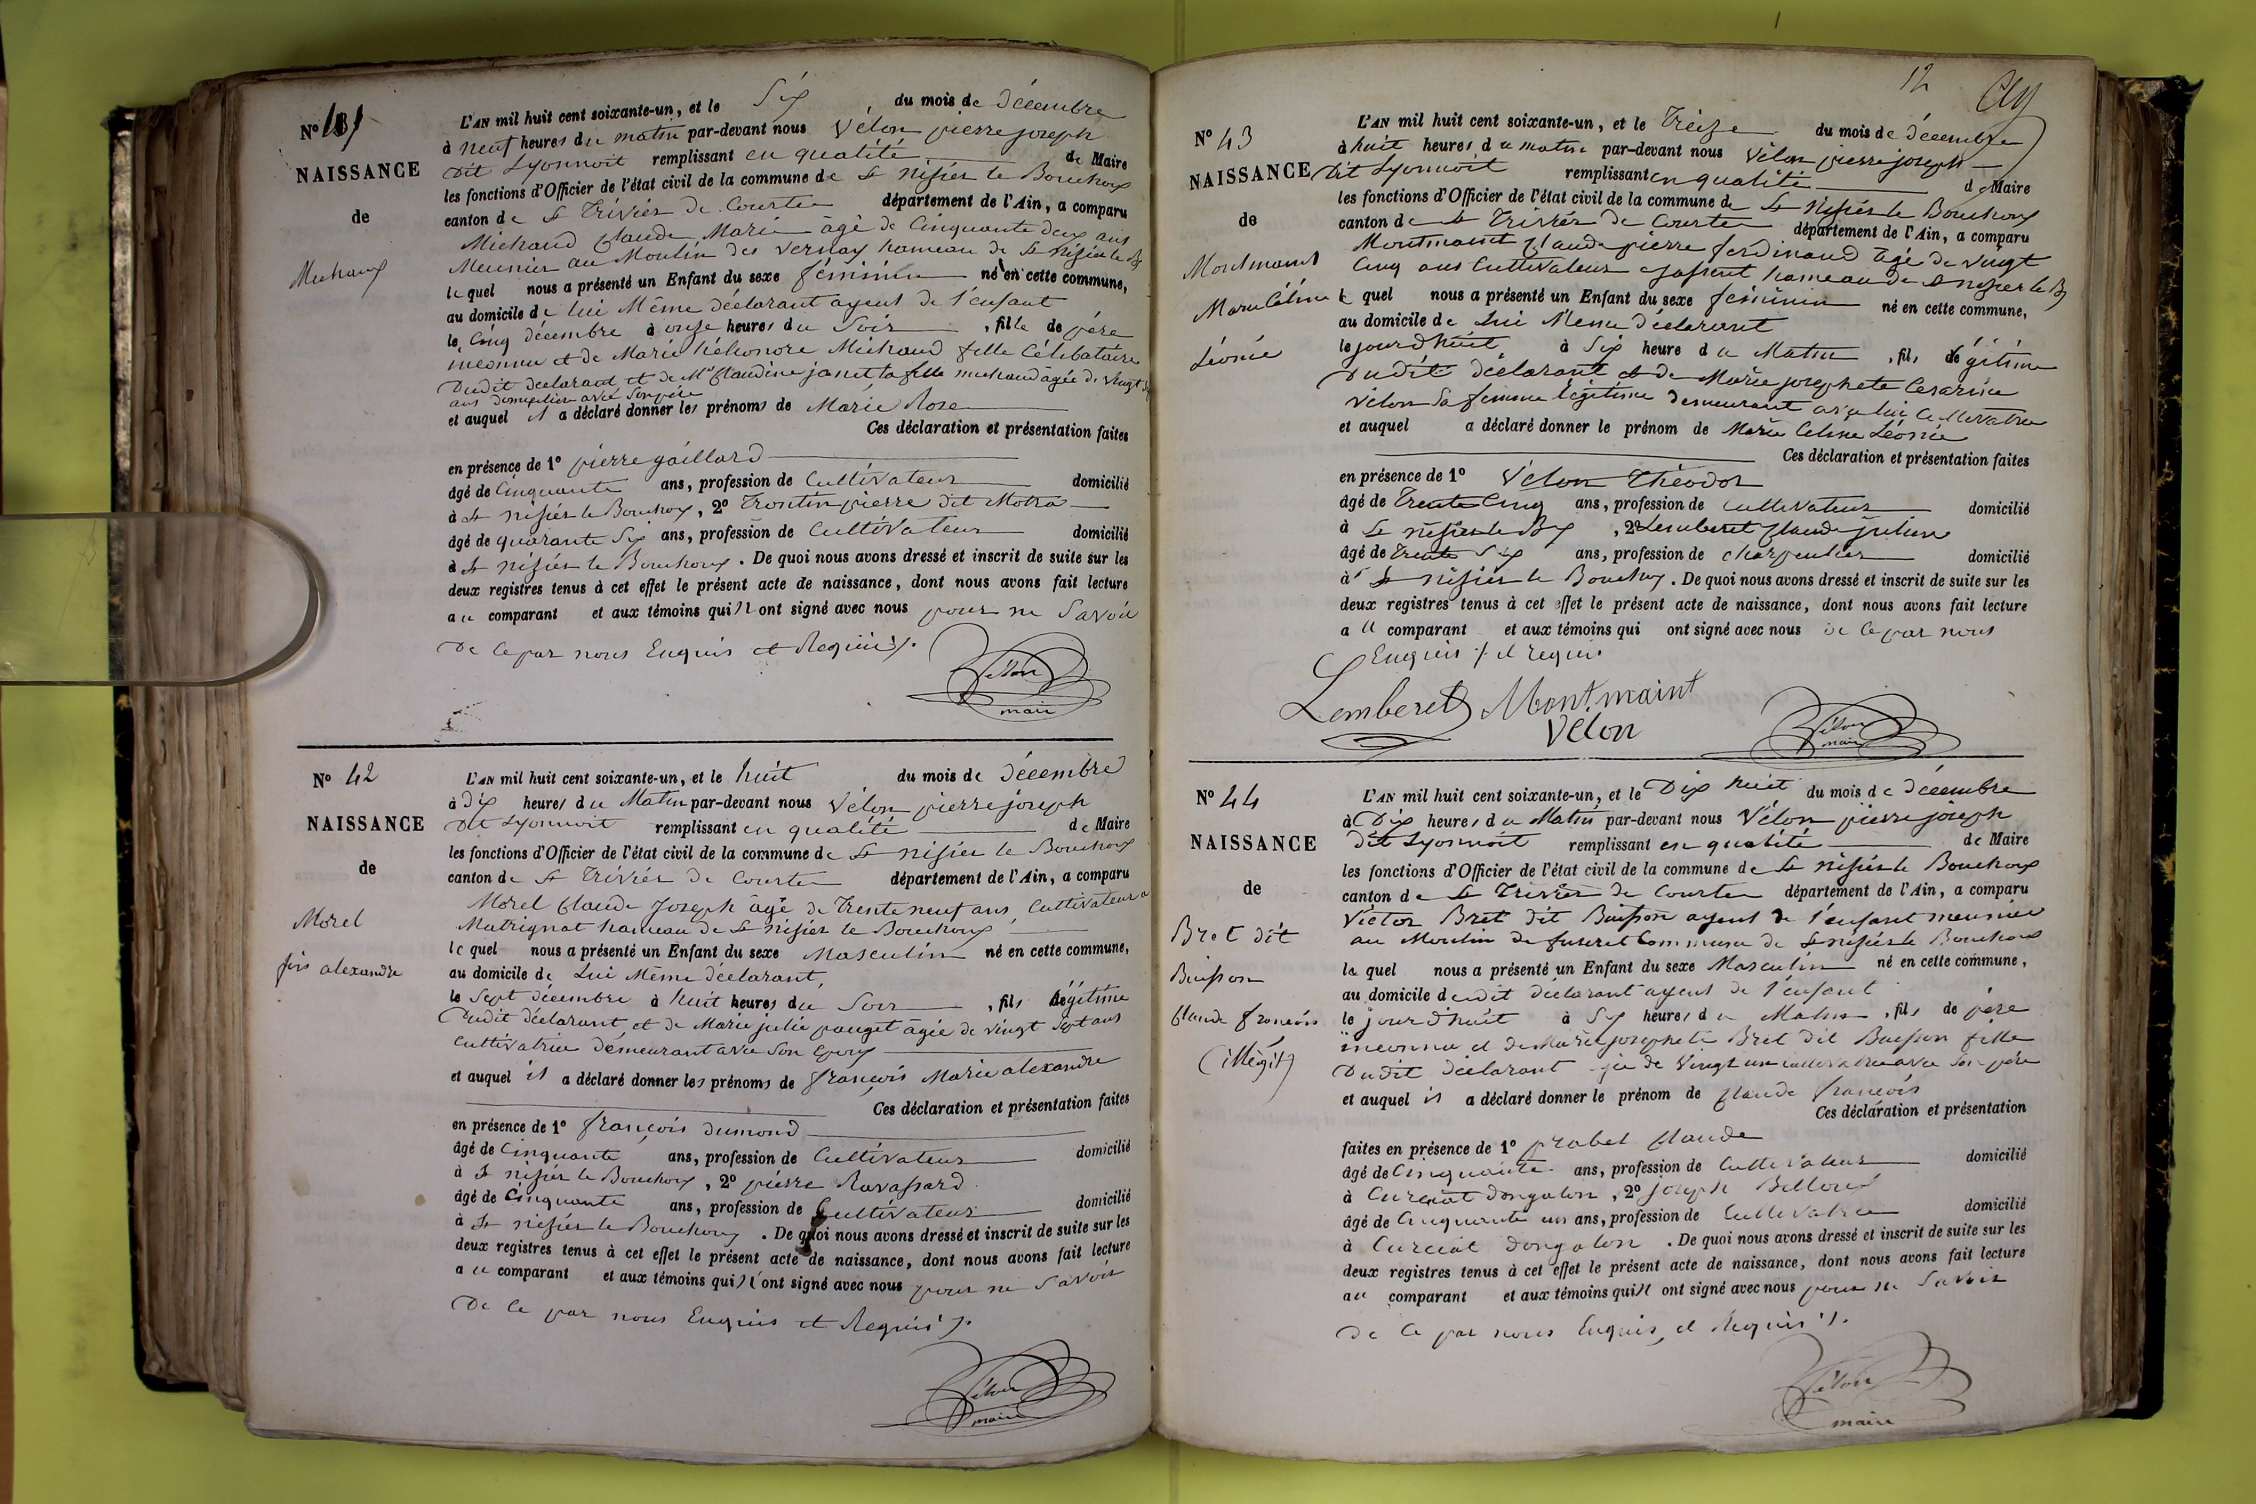 No 41
NAISSANCE
de
Michaud
L'AN mil huit cent soixante-un, et le Six du mois de décembre
à neuf heures du matin par-devant nous Vélon pierre joseph
dit Lyonnoit remplissant en qualité de Maire
les fonctions d'Officier de l'état civil de la commune de St nisier le Bouchoux
canton de St Trivier de Courtes département de l'Ain, a comparu
Michaud Claude Marie âgé de Cinquante deux ans
Meunier au Moulin des Vernay hameau de St Nisier le Bx
lequel nous a présenté un Enfant du sexe féminin né en cette commune,
au domicile de lui Même déclarant ayeul de l'enfant
le Cinq décembre à onze heures du Soir, fille de père
inconnu et de Marie héléonore Michaud fille Célibataire
Dudit déclarant et de Me Claudine janet la fille michaud âgée de vingt
ans domiciliée avec Son père
et auquel il a déclaré donner les prénoms de Marie Rose
Ces déclaration et présentation faites
en présence de 1o pierre gaillard
âgé de Cinquante ans, profession de Cultivateur domicilié
à St nisier le Bouchoux, 2o Trontin pierre dit Motra
âgé de quarante Six ans, profession de Cultivateur domicilié
à St nisier le Bouchoux. De quoi nous avons dressé et inscrit de suite sur les
deux registres tenus à cet effet le présent acte de naissance, dont nous avons fait lecture
au comparant et aux témoins qui n ont signé avec nous pour ne Savoir
De ce par nous Enquis et Requis
Vélon
maire
No 42
NAISSANCE
de
Morel
fois alexandre
L'AN mil huit cent soixante-un, et le huit du mois de décembre
à Dix heures du Matin par-devant nous Vélon pierre joseph
dit Lyonnoit remplissant en qualité de Maire
les fonctions d'Officier de l'état civil de la commune de St nisier le Bouchoux
canton de St Trivier de Courtes département de l'Ain, a comparu
Morel Claude Joseph âgé de Trente neuf ans, Cultivateur a
Matrignat hameau de St Nisier le Bouchoux
lequel nous a présenté un Enfant du sexe Masculin né en cette commune,
au domicile de Lui Même déclarant,
le Sept décembre à huit heures du Soir, fils légitime
Dudit déclarant et de Marie julie pauget âgée de vingt Sept ans
Cultivatrice demeurant avec Son Epoux
et auquel il a déclaré donner les prénoms de françois Marie alexandre
Ces déclaration et présentation faites
en présence de 1o françois dumond
âgé de Cinquante ans, profession de Cultivateur domicilié
à St nisier le Bouchoux, 2o pierre Ravassard
âgé de Cinquante ans, profession de Cultivateur domicilié
à St nisier le Bouchoux. De quoi nous avons dressé et inscrit de suite sur les
deux registres tenus à cet effet le présent acte de naissance, dont nous avons fait lecture
au comparant et aux témoins qui n ont signé avec nous pour ne Savoir
De ce par nous Enquis et Requis
Vélon
maire
12
No 43
NAISSANCE
de
Montmaint
Marie Céline
Léonie
L'AN mil huit cent soixante-un, et le Treize du mois de décembre
à huit heures du matin par-devant nous Vélon pierre joseph
dit Lyonnoit remplissant en qualité de Maire
les fonctions d'Officier de l'état civil de la commune de St Nisier le Bouchoux
canton de St Trivier de Courtes département de l'Ain, a comparu
Montmaint Claude pierre ferdinand âgé de vingt
Cinq ans Cultivateur hameau de St nisier le Bx
lequel nous a présenté un Enfant du sexe féminin né en cette commune,
au domicile de Lui Même déclarant
le jourdhuit à Six heure du Matin, fils légitime
Dudit déclarant et de Marie josephete Cesarine
Vélon Sa femme légitime demeurant avec lui Cultivatrice
et auquel a déclaré donner le prénom de Marie Céline Léonie
Ces déclaration et présentation faites
en présence de 1o Vélon Théodor
âgé de Trente Cinq ans, profession de cultivateur domicilié
à St nisier le Bx, 2o Lemberet Claude julien
âgé de Trente Six ans, profession de charpentier domicilié
à St nisier le Bouchoux. De quoi nous avons dressé et inscrit de suite sur les
deux registres tenus à cet effet le présent acte de naissance, dont nous avons fait lecture
au comparant et aux témoins qui ont signé avec nous de ce par nous
Enquis et requis
Lemberet Montmaint
Vélon
Vélon
maire
No 44
NAISSANCE
de
Bret dit
Buisson
Claude françois
(illégit)
L'AN mil huit cent soixante-un, et le Dix huit du mois de décembre
à Dix heures du Matin par-devant nous Vélon pierre joseph
dit Lyonnoit remplissant en qualité de Maire
les fonctions d'Officier de l'état civil de la commune de St nisier le Bouchoux
canton de St Trivier de Courtes département de l'Ain, a comparu
Victor Bret dit Buisson ayeul de l'enfant meunier
au Moulin de fuseret Commune de St nisier le Bouchoux
lequel nous a présenté un Enfant du sexe Masculin né en cette commune,
au domicile dudit déclarant ayeul de l'enfant
le jourdhuit à Six heures du Matin, fils de père
inconnu et de Marie josephete Bret dit Buisson fille
Dudit déclarant agée de Vingt un cultivatrice avec Son père
et auquel il a déclaré donner le prénom de Claude françois
Ces déclaration et présentation
faites en présence de 1o probet Claude
âgé de Cinquante ans, profession de Cultivateur domicilié
à Curciat dongalon, 2o joseph Belloux
âgé de Cinquante un ans, profession de Cultivateur domicilié
à Curciat dongalon. De quoi nous avons dressé et inscrit de suite sur les
deux registres tenus à cet effet le présent acte de naissance, dont nous avons fait lecture
au comparant et aux témoins qui n ont signé avec nous pour ne Savoir
De ce par nous Enquis, et Requis
Vélon
maire